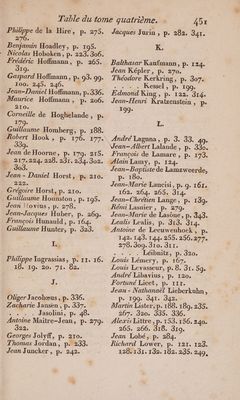 Table du tome quatrième. 451
Philippe de la Hire, p. 275.
276.
Benjamin Hoadley, p. 195.
Nicolas Hoboken, p. 223. 306.
Frédéric Hoffmann, p. 265.
319.
Gaspard Hoffmann, p. 93. 99.
100. 245. 246.
Jean-Daniel Hoffmann, p. 336.
Maurice Hoffmann, p. 206.
210.
Corneille de Hoghelande, p.
179.
Guillaume Homberg, p. 188.
Robert Hook, p. 176. 177.
339.
Jean de Hoorne, p. 179. 215.
217. 224. 228. 231. 234. 302.
303.
Jean-Daniel Horst, p. 210.
222.
Grégoire Horst, p. 210.
Guillaume Hounston, p. 195.
Jean Hovius, p. 278.
Jean-Jacques Huber, p. 269.
François Hunauld, p. 164.
Guillaume Hunter, p. 323.
I.
Philippe Ingrassias, p. 11. 16.
18. 19. 20. 71. 82.
J.
Oliger Jacobœus, p. 336.
Zacharie Jansen, p. 337.
Jasolini, p. 48.
Antoine Maître-Jean, p. 279.
322.
Georges Jolyff, p. 210.
Thomas Jordan, p. 233.
Jean Juncker, p. 242.
Jacques Jurin, p. 282. 341.
K.
Balthasar Kaufmann, p. 124.
Jean Képler, p. 270.
Théodore Kerkring, p. 307.
. . . . Kessel, p. 199.
Edmond King, p. 122. 314.
Jean-Henri Kratzenstein, p.
199.
L.
André Laguna, p. 3. 33. 49.
Jean-Albert Lalande, p. 336.
François de Lamare, p. 173.
Alain Lamy, p. 124.
Jean-Baptiste de Lamzweerde,
p. 180.
Jean-Marie Lancisi, p. 9. 161.
162. 264. 265. 314.
Jean-Chrétien Lange, p. 139.
Rémi Lasnier, p. 279.
Jean-Marie de Lasône, p. 343.
Lealis Lealis, p. 313. 314.
Antoine de Leeuwenhoek, p.
142. 143. 144. 255. 256. 277.
278. 309. 310. 311.
. . . . Leibnitz, p. 320.
Louis Lémery, p. 167.
Louis Levasseur, p. 8. 31. 59.
André Libavius, p. 120.
Fortuné Licet, p. 111.
Jean-Nathanaël Lieberkuhn,
p. 199. 341. 342.
Martin Lister, p. 188. 189. 235.
267. 320. 335. 336.
Alexis Littre, p. 153. 156. 240.
265. 266. 318. 319.
Jean Lobé, p. 284.
Richard Lower, p. 121. 123.
128. 131. 132. 182. 235. 249.